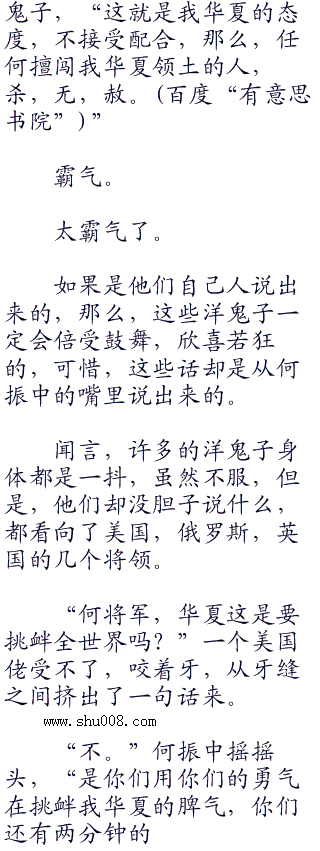 鬼子，“这就是我华夏的态
度，不接受配合，那么，任
何擅闯我华夏领土的人，
杀，无，赦。(百度“有意思
书院”)”
霸气。
太霸气了。
如果是他们自己人说出
来的，那么，这些洋鬼子一
定会倍受鼓舞，欣喜若狂
的，可惜，这些话却是从何
振中的嘴里说出来的。
闻言，许多的洋鬼子身
体都是一抖，虽然不服，但
是，他们却没胆子说什么，
都看向了美国，俄罗斯，英
国的几个将领。
“何将军，华夏这是要
挑衅全世界吗？”一个美国
佬受不了，咬着牙，从牙缝
之间挤出了一句话来。
www.shu008.com
“不。”何振中摇摇
头，“是你们用你们的勇气
在挑衅我华夏的脾气，你们
还有两分钟的